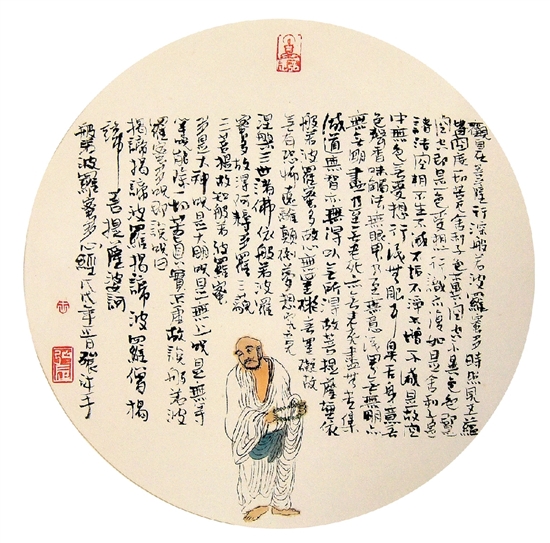 觀自在菩薩行深般若波羅蜜多時照見五蘊
皆空度一切苦厄舍利子色不異空空不異色色即是
空空即是色受想行識亦復如是舍利子是
諸法空相不生不滅不垢不淨不增不減是故空
中無色無受想行識無眼耳鼻舌身意無
色聲香味觸法無眼界乃至無意識界無無明亦
無無明盡乃至無老死亦無老死盡無苦集
滅道無智亦無得以無所得故菩提薩埵依
般若波羅蜜多故心無罣礙無罣礙故
無有恐怖遠離顛倒夢想究竟
涅槃三世諸佛依般若波羅
蜜多故得阿耨多羅三藐
三菩提故知般若波羅蜜
多是大神咒是大明咒是無上咒是無等
等咒能除一切苦真實不虛故說般若波
羅蜜多咒即說咒曰
揭諦揭諦波羅揭諦波羅僧揭
諦菩提薩婆訶
般若波羅蜜多心經戊戌年張手